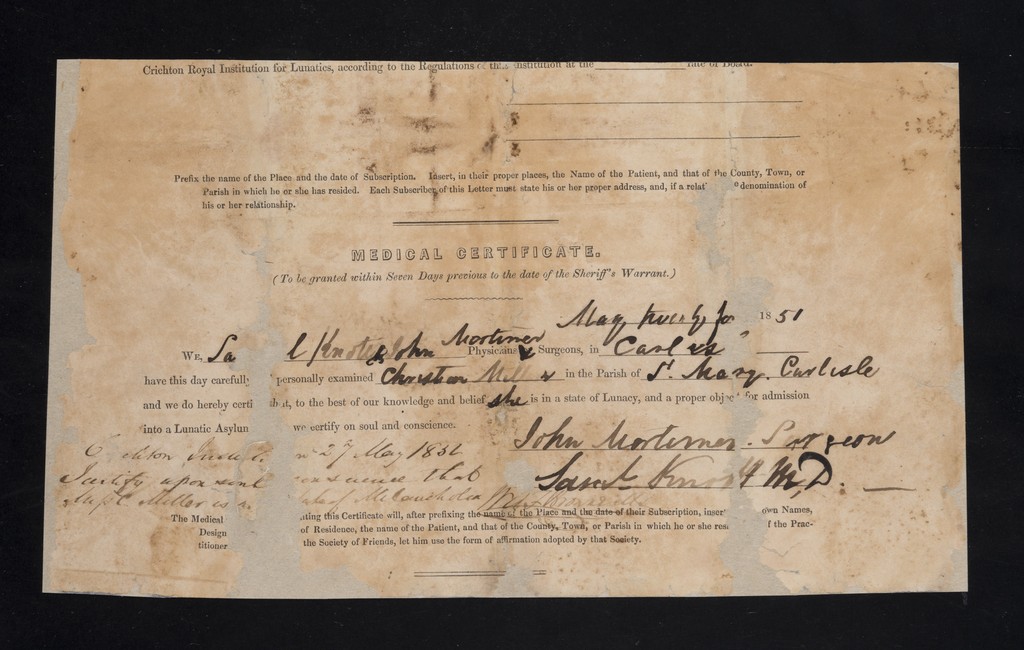 Crichton Royal Institution for Lunatics, according to the Regulations of this Institution at the rate of Board.
Prefix the name of the Place and the date of Subscription. Insert, in their proper places, the Name of the Patient, and that of the County, Town, or
Parish in which he or she has resided. Each Subscriber of this Letter must state his or her proper address, and, if a relat denomination of
his or her relationship.
MEDICAL CERTIFICATE.
(To be granted within Seven Days previous to the date of the Sheriff's Warrant.)
May 1851
WE, Sa l Knott & John Mortimer Physicians & Surgeons, in Carlisle
have this day carefully personally examined Christian Mill r in the Parish of St. Mary. Carlisle
and we do hereby certi that, to the best of our knowledge and belief she is in a state of Lunacy, and a proper object for admission
into a Lunatic Asylum we certify on soul and conscience.
John Mortimer. Surgeon
Saml Knott M.D.
27 May 1851
Certify upon that
Miller is Melancholia
The Medical ting this Certificate will, after prefixing the name of the Place and the date of their Subscription, inser own Names,
Design of Residence, the name of the Patient, and that of the County, Town, or Parish in which he or she res f the Prac-
titioner the Society of Friends, let him use the form of affirmation adopted by that Society.